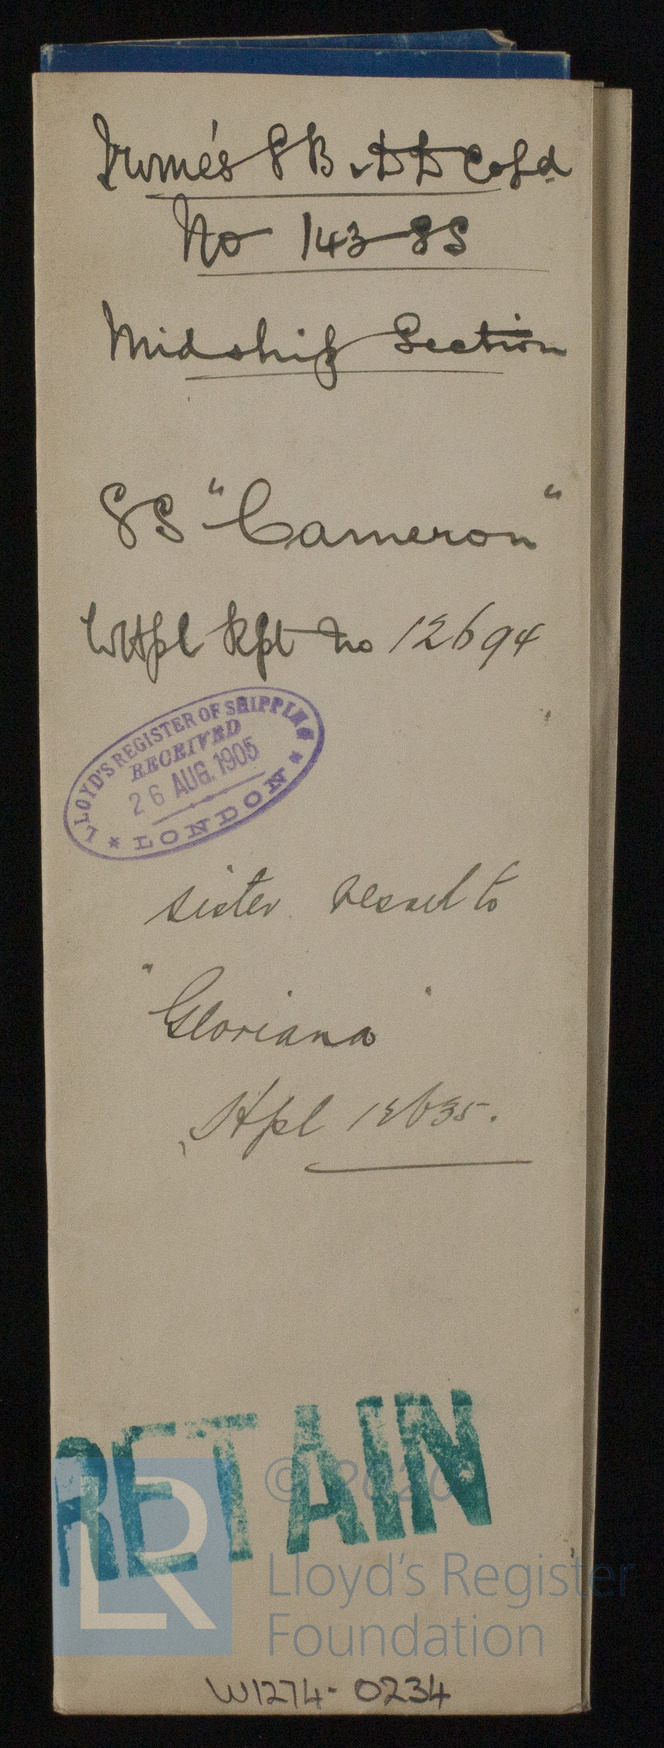 Irvine's S B & D D Co Ld
No 143 SS
Midship Section
SS "Cameron"
WHpl Rpt No 12694
LLOYD'S REGISTER OF SHIPPING
RECEIVED
26 AUG. 1905
* LONDON *
sister vessel to
"Gloriana"
Hpl 12635.
RETAIN
LR
© 2020
Lloyd's Register
Foundation
W1274-0234